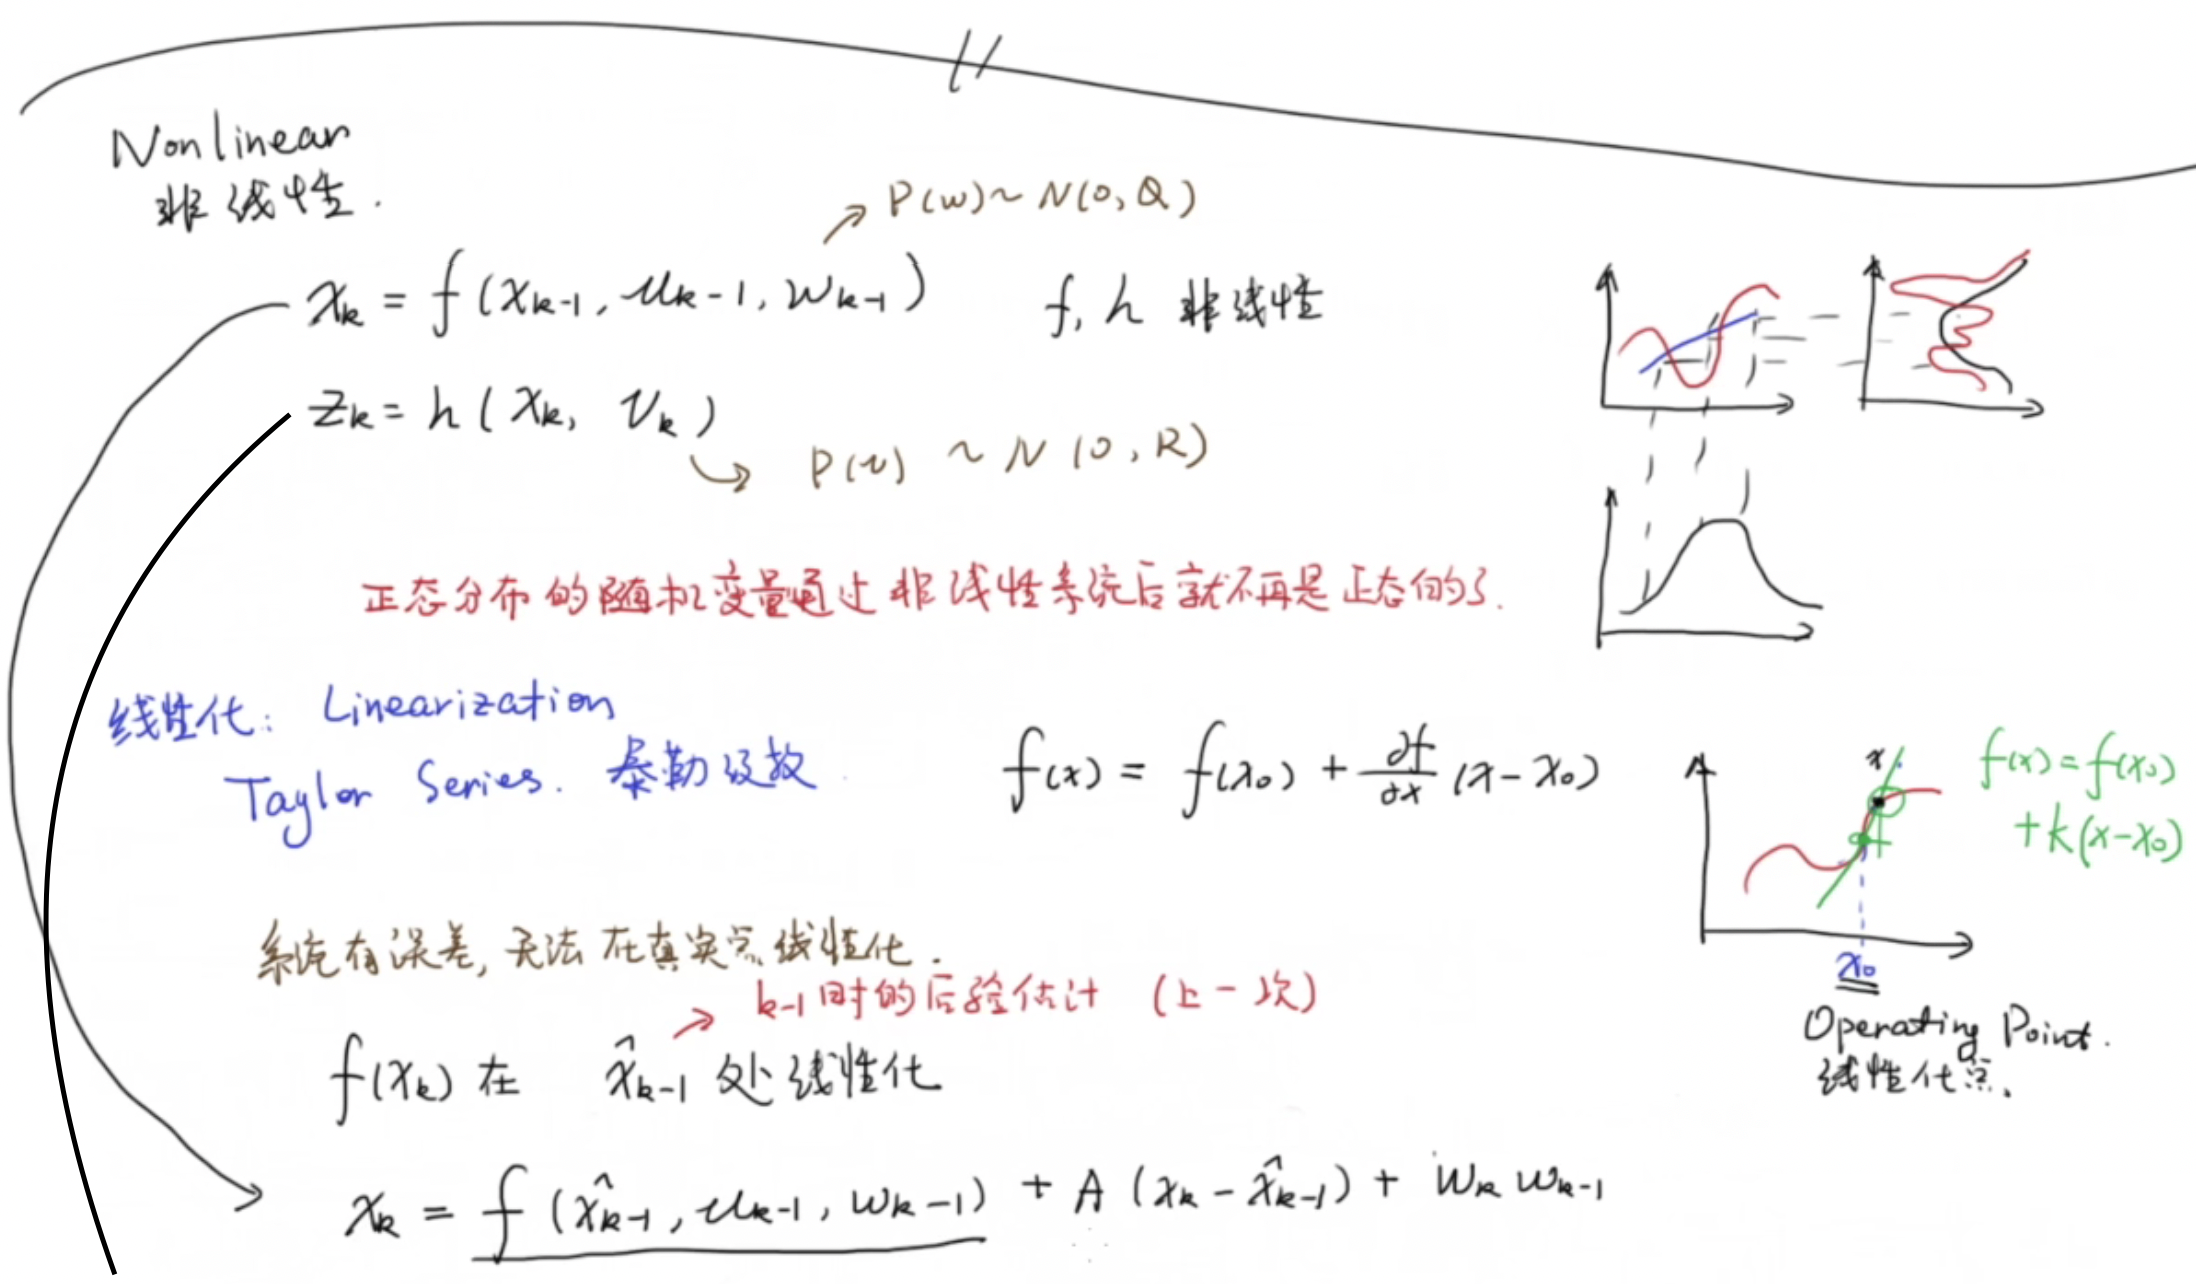 Nonlinear
非线性.
P(w) ~ N(0, Q)
x_k = f(x_{k-1}, u_{k-1}, w_{k-1})    f, h 非线性
z_k = h(x_k, v_k)
P(v) ~ N(0, R)
正态分布的随机变量通过非线性系统后就不再是正态的了.
线性化: Linearization
Taylor Series. 泰勒级数
f(x) = f(x_0) + ∂f/∂x (x - x_0)
x
f(x) = f(x_0)
+ k(x - x_0)
x_0
Operating Point.
线性化点.
系统有误差, 无法在真实点线性化.
k-1时的后验估计 (上一次)
f(x_k) 在 x̂_{k-1} 处线性化
x_k = f(x̂_{k-1}, u_{k-1}, w_{k-1}) + A(x_k - x̂_{k-1}) + W_k w_{k-1}